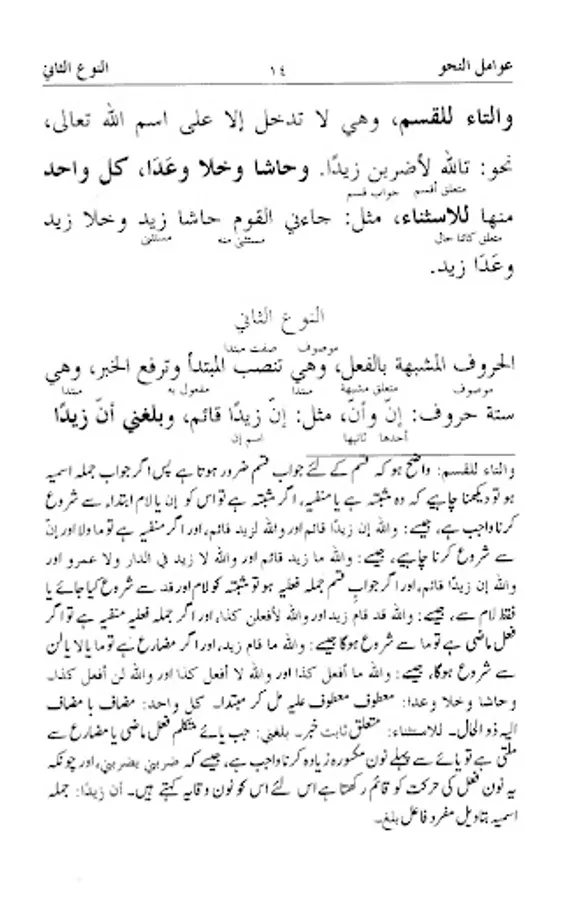 عوامل النحو ١٤ النوع الثاني
والتاء للقسم، وهي لا تدخل إلا على اسم الله تعالى،
نحو: تالله لأضربن زيدًا. وحاشا وخلا وعَدَا، كل واحد
متعلق أقسم جواب قسم
منها للاستثناء، مثل: جاءني القوم حاشا زيد وخلا زيد
متعلق كائنا حال مستثنى منه مستثنى
وعَدَا زيد.
النوع الثاني
موصوف صفت مبتدا
الحروف المشبهة بالفعل، وهي تنصب المبتدأ وترفع الخبر، وهي
موصوف متعلق مشبهة مبتدا مفعول به مبتدا
ستة حروف: إنّ وأنّ، مثل: إنّ زيدًا قائم، وبلغني أنّ زيدًا
أحدها ثانيها اسم إن
والتاء للقسم: واضح ہو کہ قسم کے لئے جواب قسم ضرور ہوتا ہے پس اگر جواب جملہ اسمیہ
ہو تو دیکھنا چاہیے کہ وہ مثبتہ ہے یا منفیہ، اگر مثبتہ ہے تو اس کو إن یا لام ابتداء سے شروع
کرنا واجب ہے، جیسے: والله إن زيدًا قائم اور والله لزيد قائم، اور اگر منفیہ ہے تو ما ولا اور إن
سے شروع کرنا چاہیے، جیسے: والله ما زيد قائم اور والله لا زيد في الدار ولا عمرو اور
والله إن زيدًا قائم، اور اگر جواب قسم جملہ فعلیہ ہو تو مثبتہ کو لام اور قد سے شروع کیا جائے یا
فقط لام سے، جیسے: والله قد قام زيد اور والله لأفعلن كذا، اور اگر جملہ فعلیہ منفیہ ہے تو اگر
فعل ماضی ہے تو ما سے شروع ہوگا جیسے: والله ما قام زيد، اور اگر مضارع ہے تو ما یا لا یا لن
سے شروع ہوگا، جیسے: والله ما أفعل كذا اور والله لا أفعل كذا اور والله لن أفعل كذا.
وحاشا وخلا وعدا: معطوف معطوف علیہ مل کر مبتدا۔ كل واحد: مضاف با مضاف
الیہ ذو الحال۔ للاستثناء: متعلق ثابت خبر۔ بلغني: جب یائے متکلم فعل ماضی یا مضارع سے
ملتی ہے تو یائے سے پہلے نون مکسورہ زیادہ کرنا واجب ہے، جیسے کہ ضربني يضربني، اور چونکہ
یہ نون فعل کی حرکت کو قائم رکھتا ہے اس لئے اس کو نون وقایہ کہتے ہیں۔ أن زيدًا: جملہ
اسمیہ بتاویل مفرد فاعل بلغ۔